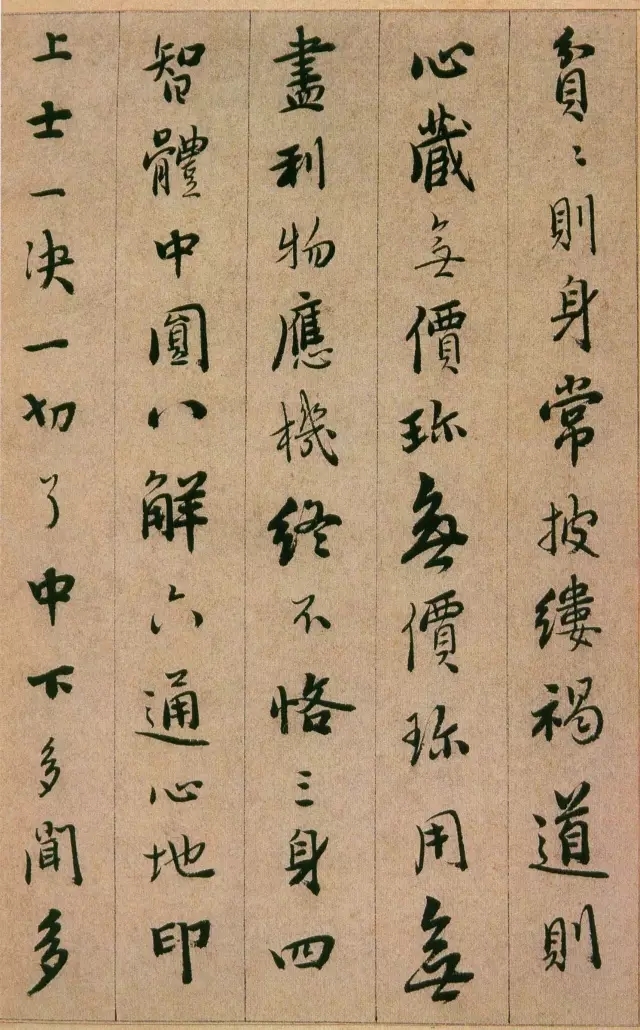 貧〻則身常披縷褐道則
心藏無價珎無價珎用無
盡利物應機終不悋三身四
智體中圓八解六通心地印
上士一决一切了中下多聞多